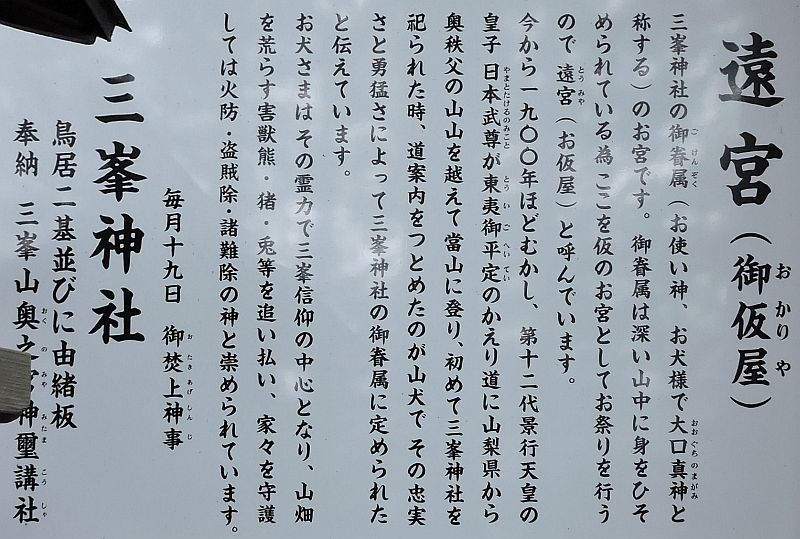 遠宮（御仮屋）
おかりや
三峯神社の御眷属（お使い神、お犬様で大口真神と
ごけんぞく
おおぐちのまがみ
称する）のお宮です。御眷属は深い山中に身をひそ
められている為ここを仮のお宮としてお祭りを行う
ので 遠宮（お仮屋）と呼んでいます。
とうみや
今から一九〇〇年ほどむかし、第十二代景行天皇の
皇子 日本武尊が東夷御平定のかえり道に山梨県から
やまとたけるのみこと
とういごへいてい
奥秩父の山山を越えて當山に登り、初めて三峯神社を
祀られた時、道案内をつとめたのが山犬で その忠実
さと勇猛さによって三峯神社の御眷属に定められた
と伝えています。
お犬さまはその霊力で三峯信仰の中心となり、山畑
を荒らす害獣熊・猪・兎等を追い払い、家々を守護
しては火防・盗賊除・諸難除の神と崇められています。
毎月十九日 御焚上神事
おたきあげしんじ
三峯神社
鳥居二基並びに由緒板
奉納 三峯山奥之宮神璽講社
おくのみやみたまこうしゃ